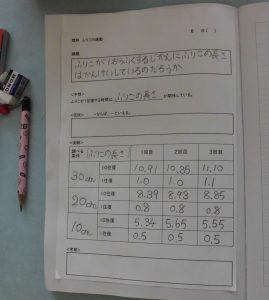 月 日( )
理科 ふりこの運動
<課題>
ふりこが1おうふくするじかんにふりこの長さ
はかんけいしているのだろうか
<予想>
ふりこが1往復する時間は ふりこの長さ が関係している。
<仮説> ～ならば、～といえる。
<実験>
調べる条件 (ふりこの長さ) 1回目 2回目 3回目
30cm 10往復 10.91 10.35 11.10
1往復 1.0 1.0 1.1
20cm 10往復 8.39 8.93 8.85
1往復 0.8 0.8 0.8
10cm 10往復 5.34 5.65 5.55
1往復 0.5 0.5 0.5
<考察>